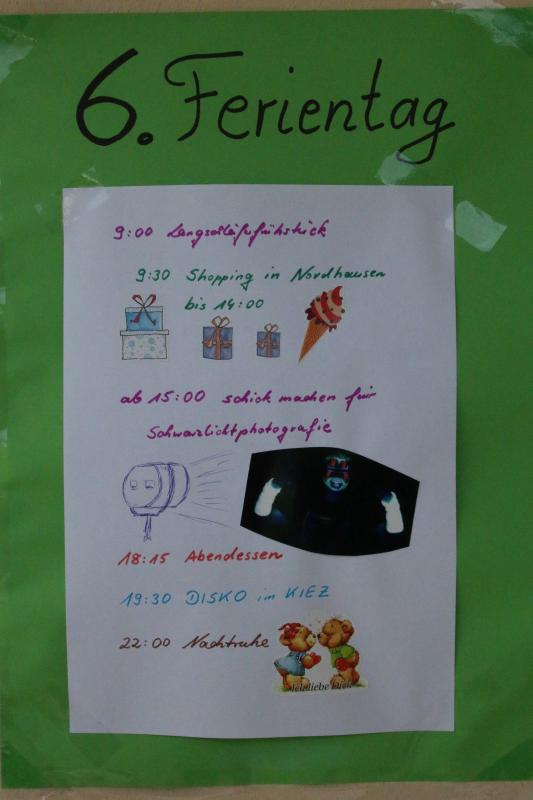 6. Ferientag
9:00 Langschläferfrühstück
9:30 Shopping in Nordhausen
bis 14:00
ab 15:00 schick machen für
Schwarzlichtphotografie
18:15 Abendessen
19:30 DISKO im KIEZ
22:00 Nachtruhe
Ich liebe Dich